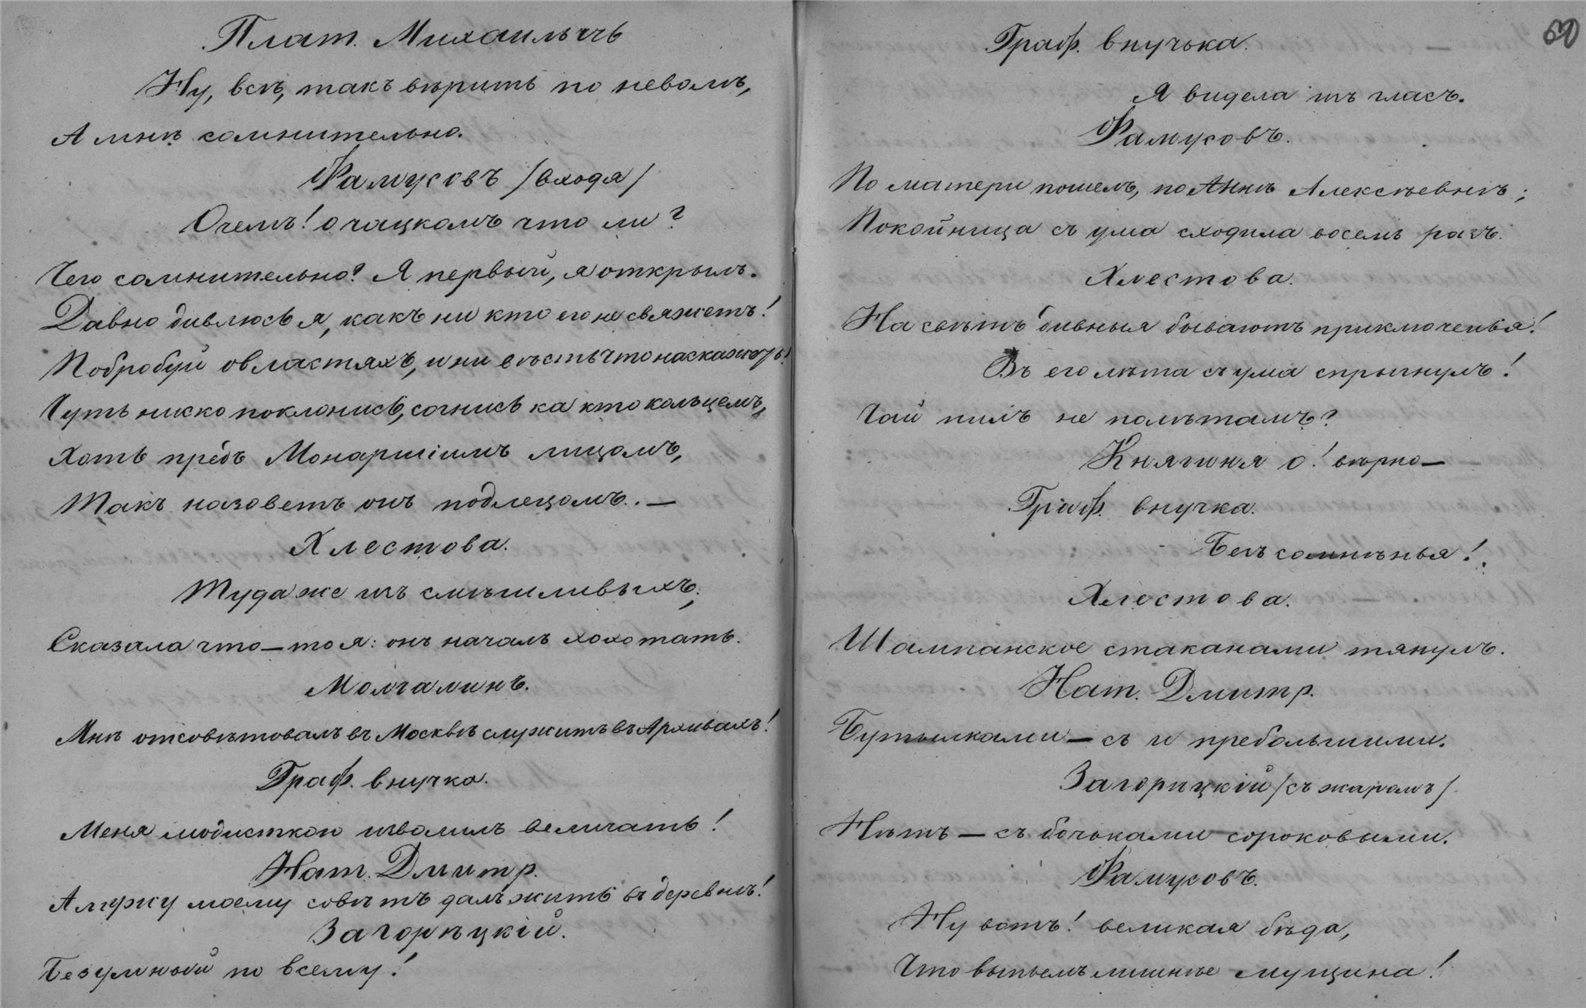 Плат. Михаилычъ
Ну, всѣ, такъ вѣрить по неволѣ,
А мнѣ сомнительно.
Фамусовъ /входя/
О чемъ! о чацкомъ что ли?
Чего сомнительно? Я первый, я открылъ.
Давно дивлюсь я, какъ ни кто его не свяжетъ!
Побробуй о властяхъ, и ни вѣсть что наскажетъ!
Чуть ниско поклонись, согнись ка кто кольцемъ,
Хоть предъ Монаршіимъ лицомъ,
Такъ назоветъ онъ подлецомъ. —
Хлестова.
Туда же изъ смѣшливыхъ;
Сказала что—то я: онъ началъ хохотать.
Молчалинъ.
Мнѣ отсовѣтовалъ въ Москвѣ служить въ Архивахъ!
Граф. внучка.
Меня модисткою изволилъ величать!
Нат. Дмитр.
А мужу моему совѣтъ далъ жить въ деревнѣ!
Загорѣцкій.
Безумный по всему!
Граф. внучька.
60
Я видела изъ глазъ.
Фамусовъ.
По матери пошелъ, по Аннѣ Алексѣевнѣ;
Покойница съ ума сходила восемь разъ.
Хлестова.
На свѣтѣ дивныя бываютъ приключенья!
Въ его лѣта съ ума спрыгнулъ!
Чай пилъ не по лѣтамъ?
Княгиня о! вѣрно—
Граф. внучка.
Безъ сомнѣнья!
Хлестова.
Шампанское стаканами тянулъ.
Нат. Дмитр.
Бутылками—съ и пребольшими.
Загорицкій /съ жаромъ/.
Нѣтъ — съ бочьками сороковыми.
Фамусовъ.
Ну вотъ! великая бѣда,
Что выпьемъ лишнѣе мущина!